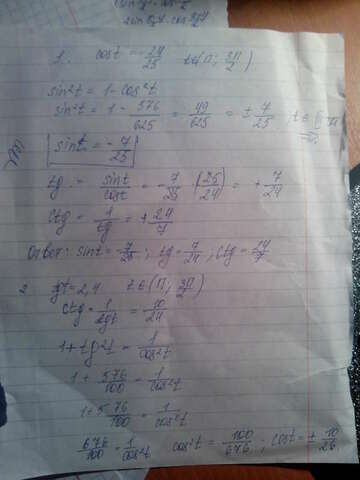 1. cos t = -24/25 t∈(П; 3П/2)
sin²t = 1 - cos²t
sin²t = 1 - 576/625 = 49/625 = ± 7/25; t ∈
sin t = - 7/25
tg = sin t/cos t = - 7/25 · (25/24) = + 7/24
ctg = 1/tg = + 24/7
Ответ: sin t = - 7/25; tg = 7/24; ctg = 24/7
2 tgt = 2,4 t∈(П; 3П/2)
ctg = 1/tgt = 10/24
1 + tg²t = 1/cos²t
1 + 576/100 = 1/cos²t
1 + 576/100 = 1/cos²t
676/100 = 1/cos²t cos²t = 100/676; cos t = ± 10/26